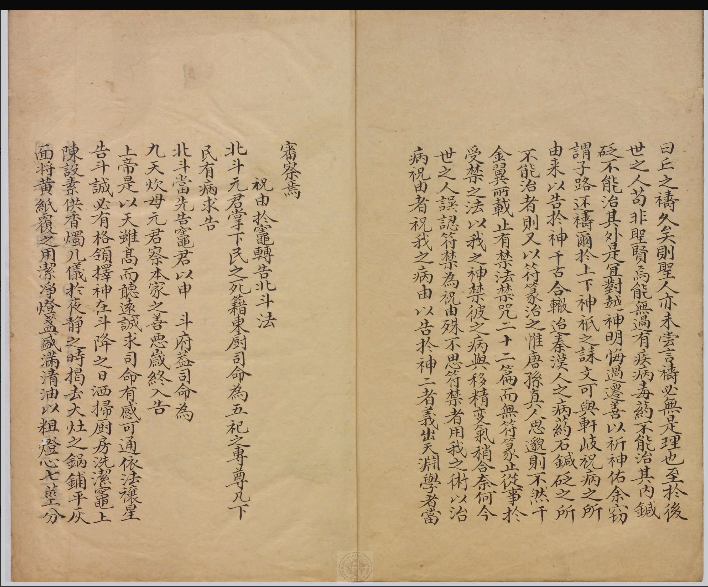 曰丘之禱久矣則聖人亦未嘗言禱必無是理也至於後
世之人苟非聖賢焉能無過有疾病毒藥不能治其内鍼
砭不能治其外是宜對越神明悔過遷善以祈神佑余竊
謂子路还禱爾於上下神祇之誄文可與軒岐祝病之所
由来以告於神千古合轍迨秦漢人之病药石鍼砭之所
不能治者則又以符篆治之惟唐孫真人思邈則不然千
金翼所載止有禁法禁咒二十二篇而無符篆止從事於
受禁之法以我之神禁彼之病與移精变氣稍合奈何今
世之人誤認符禁為祝由殊不思符禁者用我之術以治
病祝由者祝我之病由以告於神二者義出天淵學者當
審察焉
祝由於竈轉告北斗法
北斗元君掌下民之死籍東厨司命為五祀之專尊凡下
民有病求告
北斗當先告竈君以申 斗府葢司命為
九天炊母元君察本家之善惡歲終入告
上帝是以天雖髙而聽逺誠求司命有感可通依法禳星
告斗誠必有格領擇神在斗降之日洒掃厨房洗潔竈上
陳設素供香燭几儀於夜静之時揭去大灶之鍋鋪平灰
面将黄紙覆之用潔凈燈盞盛滿清油以粗燈心七莖分